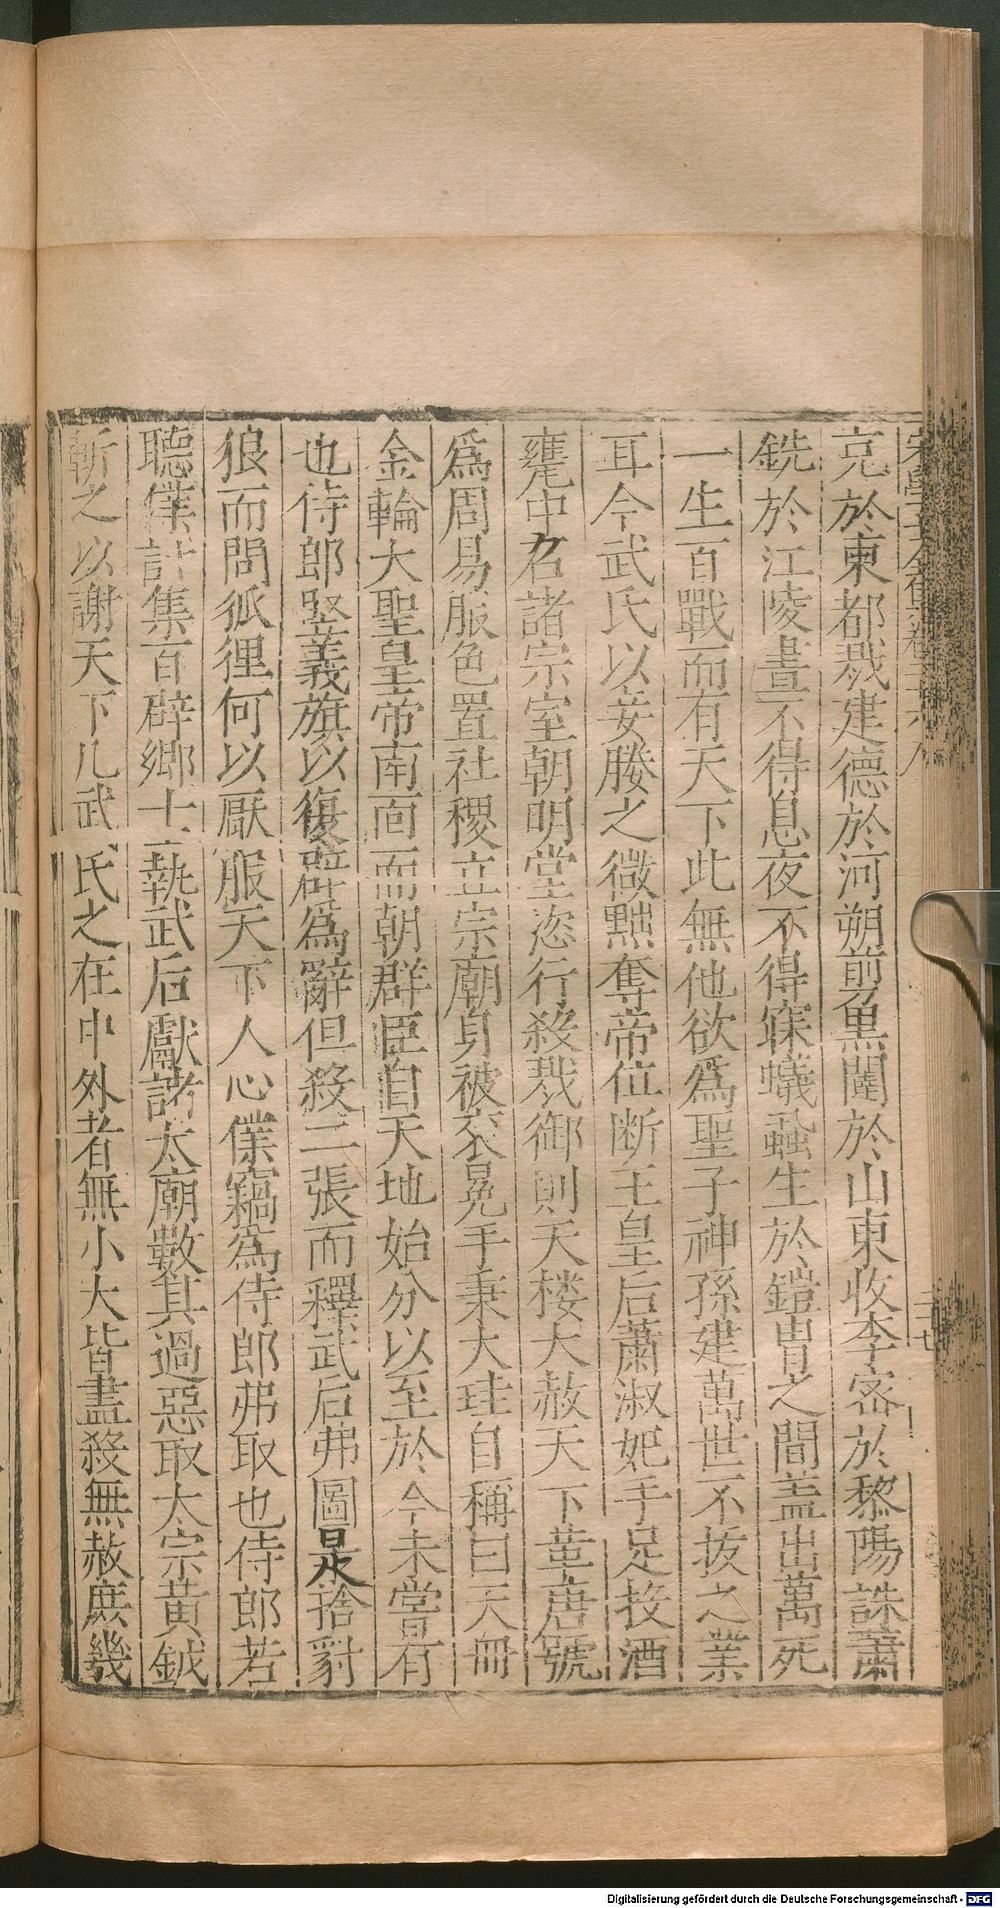 宋學士全集卷二十八
克於東都戕建德於河朔剪黒闥於山東收李宻於黎陽誅蕭
銑於江陵晝不得息夜不得寐蟻蝨生於鎧胄之間盖出萬死
一生百戰而有天下此無他欲爲聖子神孫建萬世不拔之業
耳今武氏以妾媵之微黜奪帝位断王皇后蕭淑妃手足投酒
甕中名諸宗室朝明堂恣行殺戕御則天楼大赦天下革唐號
爲周易服色置社稷立宗廟身被衮冕手秉大珪自稱曰天冊
金輪大聖皇帝南面而朝群臣自天地始分以至於今未嘗有
也侍郎竪義旗以復辟爲辭但殺二張而釋武后弗圖是捨豺
狼而問狐狸何以厭服天下人心僕竊爲侍郎弗取也侍郎若
聽僕計集百辟鄉士執武后獻諸太廟數其過惡取太宗黄鉞
斬之以謝天下凡武氏之在中外者無小大皆盡殺無赦庶幾
Digitalisierung gefördert durch die Deutsche Forschungsgemeinschaft - DFG